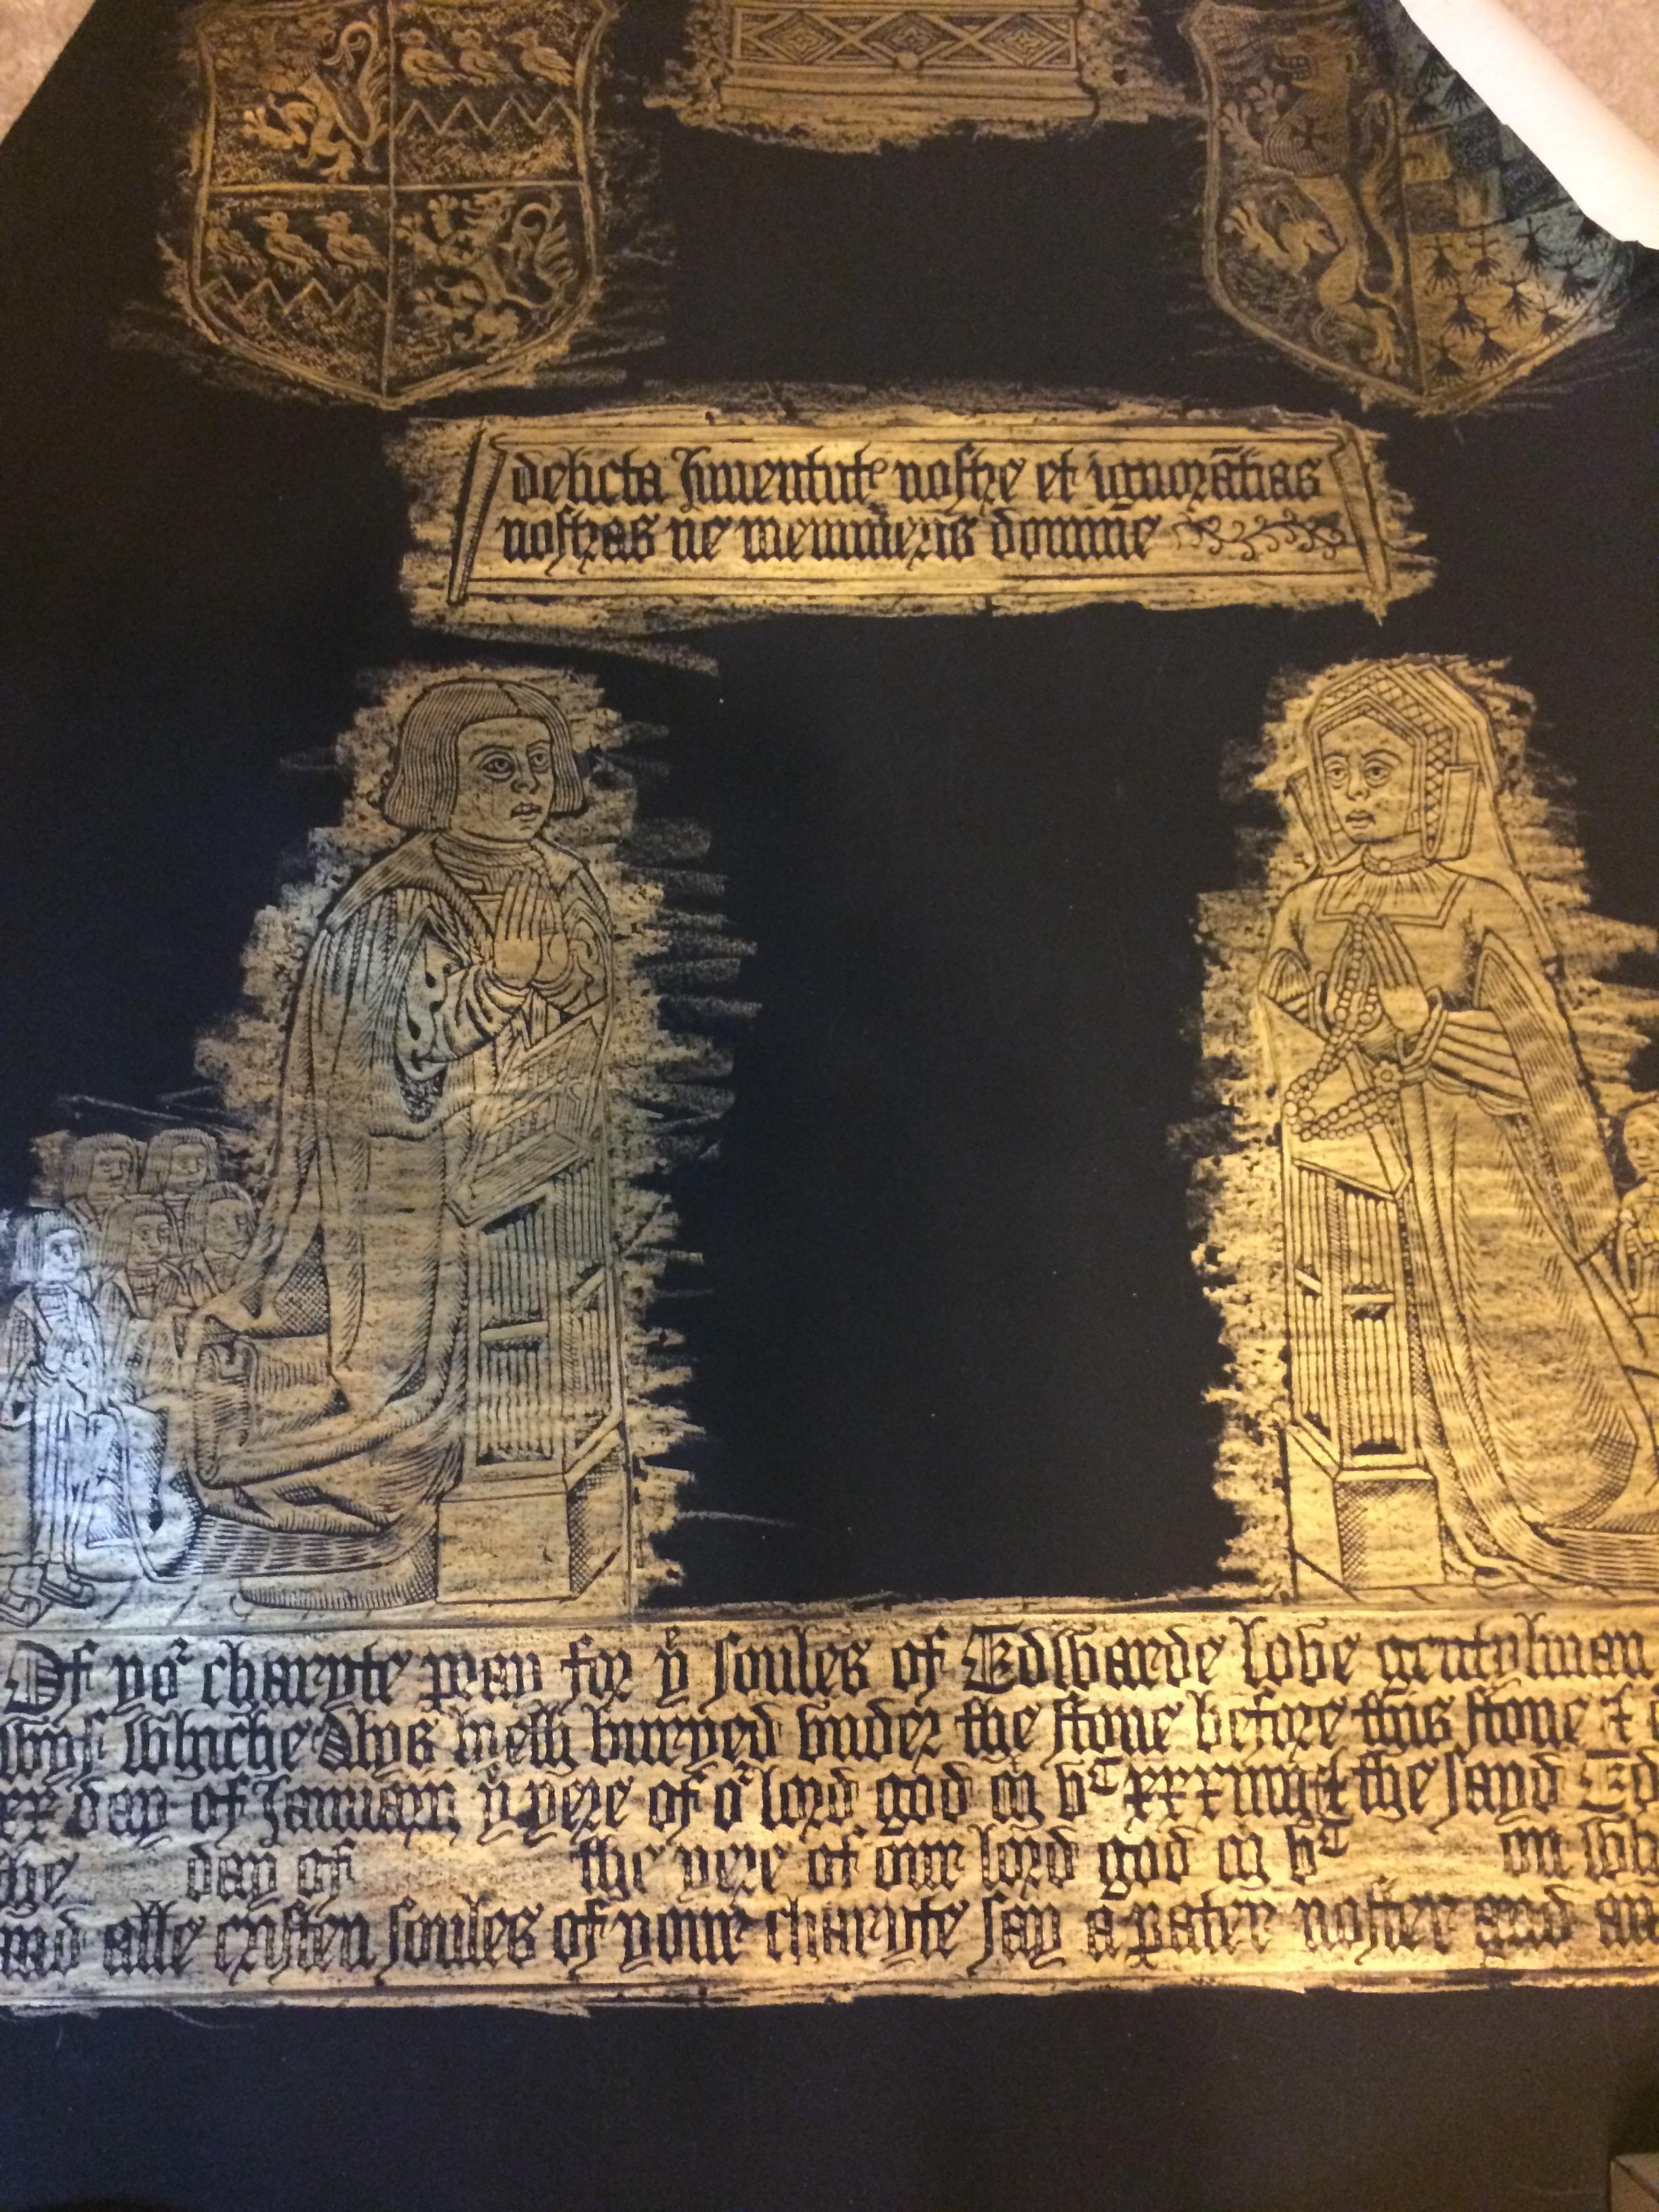 delicta Juventut nostre et ignorātias
nostras ne memineris domine
Of yoʳ charyte pray for yͤ soules of Edwarde love gentylman
wyf whiche Alys lyeth buryed vnder the stone before this stone &
xx day of January yͤ yere of oʳ lord god m vᶜ xxxiiij & the sayd Ed
the day of the yere of our lord god m vᶜ on wh
and alle cristen soules of your charyte say a pater noster and an